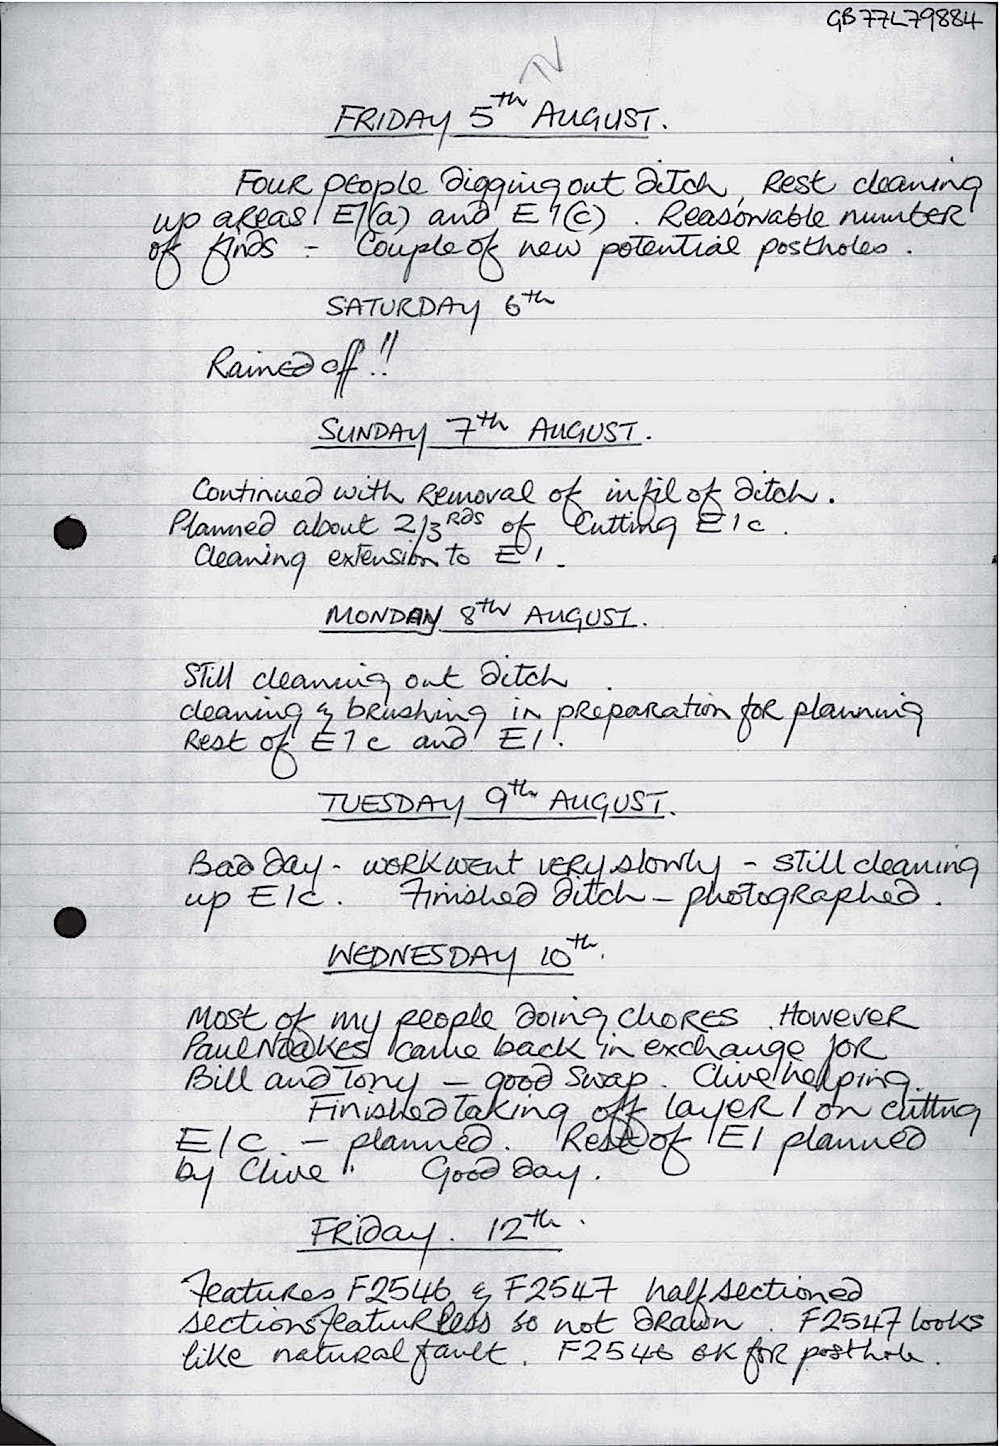 GB77L79884
FRIDAY 5th AUGUST.
Four people digging out ditch, Rest cleaning
up areas E1(a) and E1(c). Reasonable number
of finds - Couple of new potential postholes.
SATURDAY 6th
Rained off!!
SUNDAY 7th AUGUST.
Continued with Removal of infil of ditch.
Planned about 2/3rds of Cutting E1c.
Cleaning extension to E1.
MONDAY 8th AUGUST.
Still cleaning out ditch.
cleaning & brushing in preparation for planning
Rest of E1c and E1.
TUESDAY 9th AUGUST.
Bad day - work went very slowly - still cleaning
up E1c. Finished ditch - photographed.
WEDNESDAY 10th.
Most of my people doing chores. However
Paul Noakes came back in exchange for
Bill and Tony - good swap. Clive helping.
Finished taking off layer 1 on cutting
E1c - planned. Rest of E1 planned
by Clive. Good day.
Friday. 12th.
Features F2546 & F2547 half sectioned
sections featureless so not drawn. F2547 looks
like natural fault. F2546 OK for posthole.